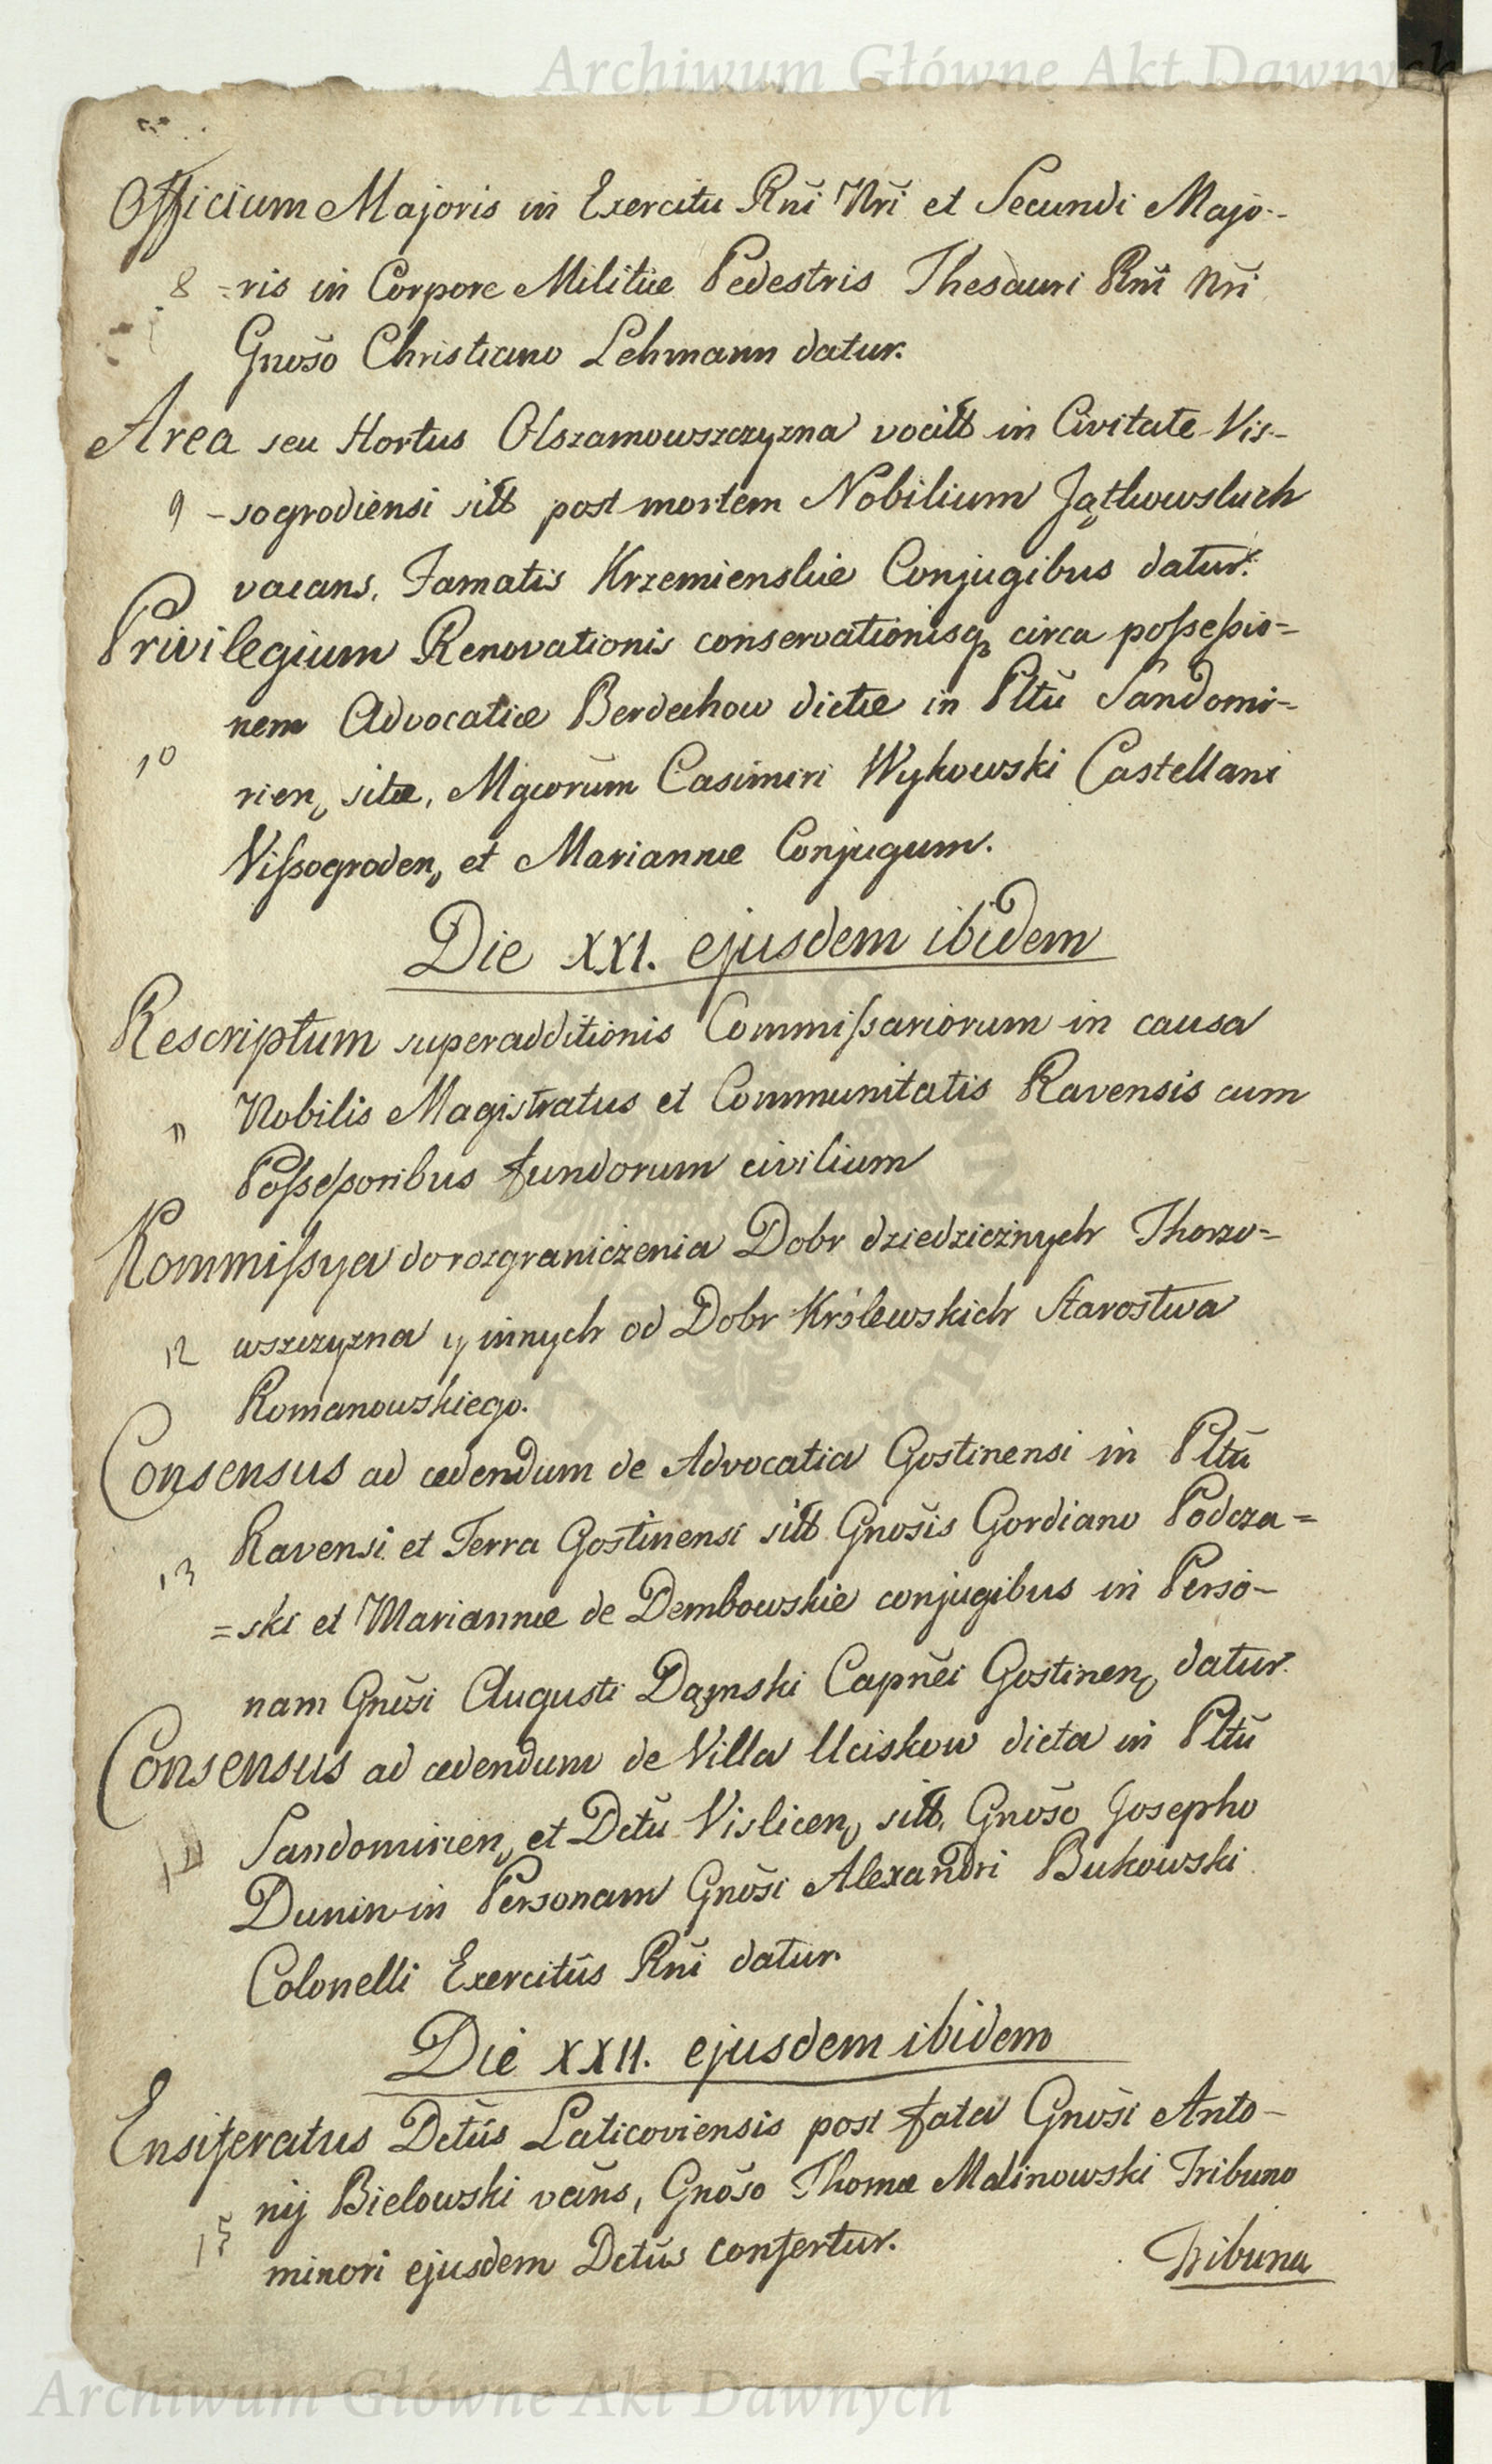 Archiwum Główne Akt Dawnych
Officium Majoris in Exercitu Rñi Nri et Secundi Majo-
8 =ris in Corpore Militiæ Pedestris Thesauri Rñi Nri
Gnoso Christiano Lehmann datur.
Area seu Hortus Olszamowszczyzna vocat in Civitate Vis-
9 -sogrodiensi sitt post mortem Nobilium Jątkowskich
vacans, Famatis Krzemienskie Conjugibus datur.
Privilegium Renovationis conservationisq circa possessio=
nem Advocatiæ Berdechow dictæ in Pltũ Sandomi-
10 rien, sitæ, Mgcorũm Casimiri Wykowski Castellani
Vissogroden, et Mariannæ Conjugum.
Die XXI. ejusdem ibidem
Rescriptum superadditionis Commissariorum in causa
11 Nobilis Magistratus et Communitatis Ravensis cum
Possessoribus fundorum civilium
Kommissya do rozgraniczenia Dobr dziedzicznych Thorzo=
12 wszczyzna y innych od Dobr Królewskich Starostwa
Romanowskiego.
Consensus ad cedendum de Advocatia Gostinensi in Pltũ
Ravensi et Terra Gostinensi sitt Gnosis Gordiano Podcza=
13 =ski et Mariannæ de Dembowskie conjugibus in Perso-
nam Gnosi Augusti Dąmski Capnei Gostinen, datur.
Consensus ad cedendum de Villa Uciskow dicta in Pltũ
14 Sandomirien, et Dctũ Vislicen, sitt, Gnoso Josepho
Dunin in Personam Gnosi Alexandri Bukowski
Colonelli Exercitũs Rñi datur.
Die XXII. ejusdem ibidem
Ensiferatus Dctũs Laticoviensis post fata Gnosi Anto-
nij Bielowski vcãns, Gnoso Thomæ Malinowski Tribuno
15 minori ejusdem Dctũs confertur.
Tribuna
Archiwum Główne Akt Dawnych